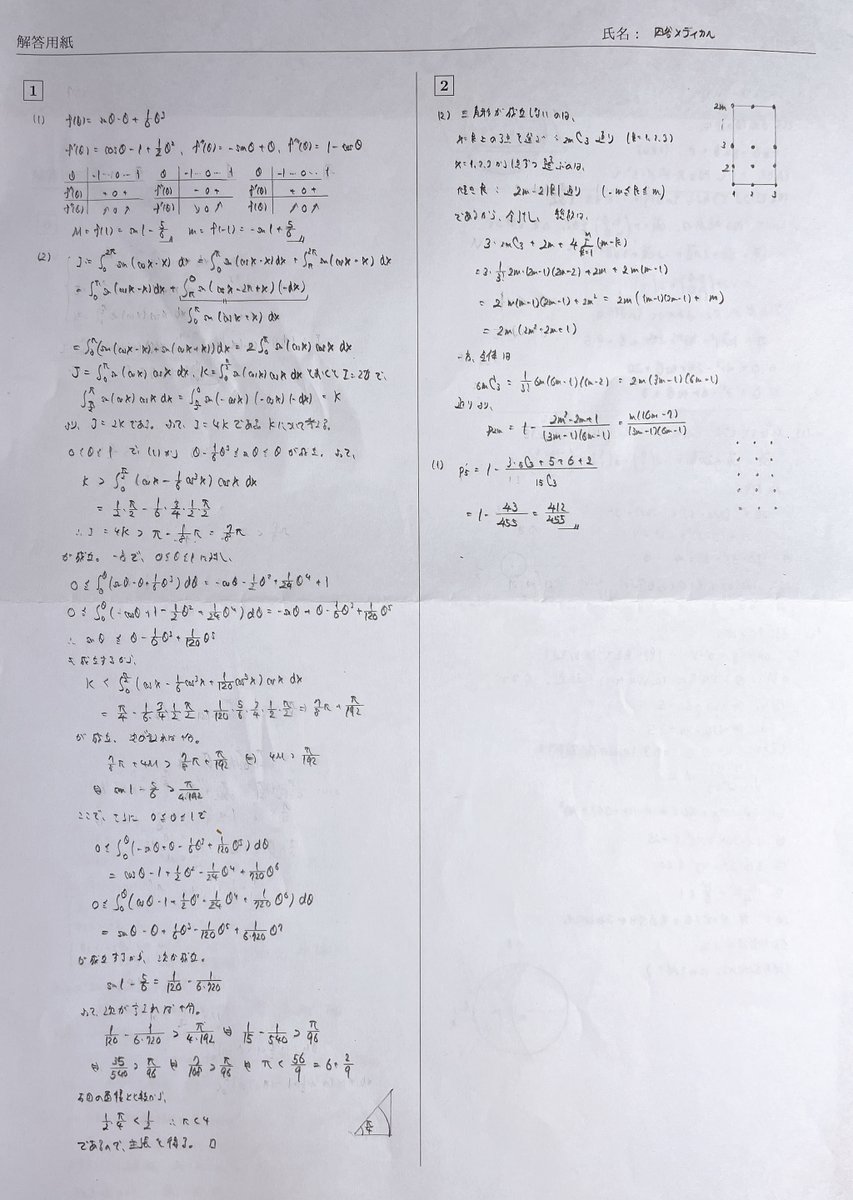 解答用紙
氏名： 四谷メディカル
1
(1) f(θ) = sinθ - θ + 1/6 θ³
f'(θ) = cosθ - 1 + 1/2 θ², f''(θ) = -sinθ + θ, f'''(θ) = 1 - cosθ
θ | -1 … 0 … 1 θ | -1 … 0 … 1 θ | -1 … 0 … 1
f'''(θ) | + 0 + f''(θ) | - 0 + f'(θ) | + 0 +
f''(θ) | ↗ 0 ↗ f'(θ) | ↘ 0 ↗ f(θ) | ↗ 0 ↗
M = f(1) = sin1 - 5/6 m = f(-1) = -sin1 + 5/6
(2) I = ∫₀^{2π} sin(cosx - x) dx = ∫₀^π sin(cosx - x) dx + ∫_π^{2π} sin(cosx - x) dx
= ∫₀^π sin(cosx - x) dx + ∫_π^0 sin(cosx - 2π + x)(-dx)
∫₀^π sin(cosx + x) dx
= ∫₀^π (sin(cosx - x) + sin(cosx + x)) dx = 2∫₀^π sin(cosx) cosx dx
J = ∫₀^π sin(cosx) cosx dx, K = ∫₀^{π/2} sin(cosx) cosx dx とおくと I = 2J で、
∫_{π/2}^π sin(cosx) cosx dx = ∫_{π/2}^0 sin(-cosx)(-cosx)(-dx) = K
より、J = 2K である。よって、I = 4K である Kについて考える。
0 ≤ θ ≤ 1 で (1)から θ - 1/6 θ³ ≤ sinθ ≤ θ が成立。よって、
K > ∫₀^{π/2} (cosx - 1/6 cos³x) cosx dx
= 1/2・π/2 - 1/6・3/4・1/2・π/2
∴ I = 4K > π - 1/8 π = 7/8 π
が成立。一方で、0 ≤ θ ≤ 1 に対し、
0 ≤ ∫₀^θ (sinθ - θ + 1/6 θ³) dθ = -cosθ - 1/2 θ² + 1/24 θ⁴ + 1
0 ≤ ∫₀^θ (-cosθ + 1 - 1/2 θ² + 1/24 θ⁴) dθ = -sinθ + θ - 1/6 θ³ + 1/120 θ⁵
∴ sinθ ≤ θ - 1/6 θ³ + 1/120 θ⁵
も成立するから、
K < ∫₀^{π/2} (cosx - 1/6 cos³x + 1/120 cos⁵x) cosx dx
= π/4 - 1/6・3/4・1/2・π/2 + 1/120・5/6・3/4・1/2・π/2
が成立、次が言えれば十分。
7/8 π + 4M > 7/8 π + π/192 ⇔ 4M > π/192
⇔ sin1 - 5/6 > π/4・192
ここで、さらに 0 ≤ θ ≤ 1 で
0 ≤ ∫₀^θ (-sinθ + θ - 1/6 θ³ + 1/120 θ⁵) dθ
= cosθ - 1 + 1/2 θ² - 1/24 θ⁴ + 1/720 θ⁶
0 ≤ ∫₀^θ (cosθ - 1 + 1/2 θ² - 1/24 θ⁴ + 1/720 θ⁶) dθ
= sinθ - θ + 1/6 θ³ - 1/120 θ⁵ + 1/6・720 θ⁷
が成立するから、次が成立。
sin1 - 5/6 ≥ 1/120 - 1/6・720
よって、次が言えれば十分。
1/120 - 1/6・720 > π/4・192 ⇔ 1/15 - 1/540 > π/96
⇔ 35/540 > π/96 ⇔ 7/108 > π/96 ⇔ π < 56/9 = 6 + 2/9
右図の面積を比較から、
1/2・π/4 < 1/2 ∴ π < 4
であるので、主張を得る。 □
π/4
2
(2) 三角形が成立しないのは、
x=k 上の3点を選ぶ: 2mC3 通り (k=1,2,3)
x=1,2,3 から1点ずつ選ぶのは、
傾き k : 2m - 2|k| 通り (-m ≤ k ≤ m)
であるから、合計し、総数は、
3・2mC3 + 2m + 4Σ_{k=1}^m (m-k)
= 3・1/3! 2m・(2m-1)(2m-2) + 2m + 2m(m-1)
= 2m(m-1)(2m-1) + 2m² = 2m((m-1)(2m-1) + m)
= 2m(2m² - 2m + 1)
一方、全体は
6mC3 = 1/3! 6m(6m-1)(6m-2) = 2m(3m-1)(6m-1)
通りより、
p2m = 1 - 2m²-2m+1/(3m-1)(6m-1) = m(16m-7)/(3m-1)(6m-1)
(1) p5 = 1 - 3・5C3 + 5 + 6 + 2/15C3
= 1 - 43/455 = 412/455
2m
3
2